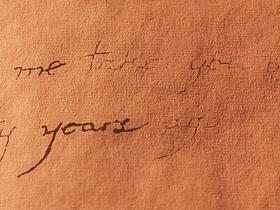 me take you
years ago